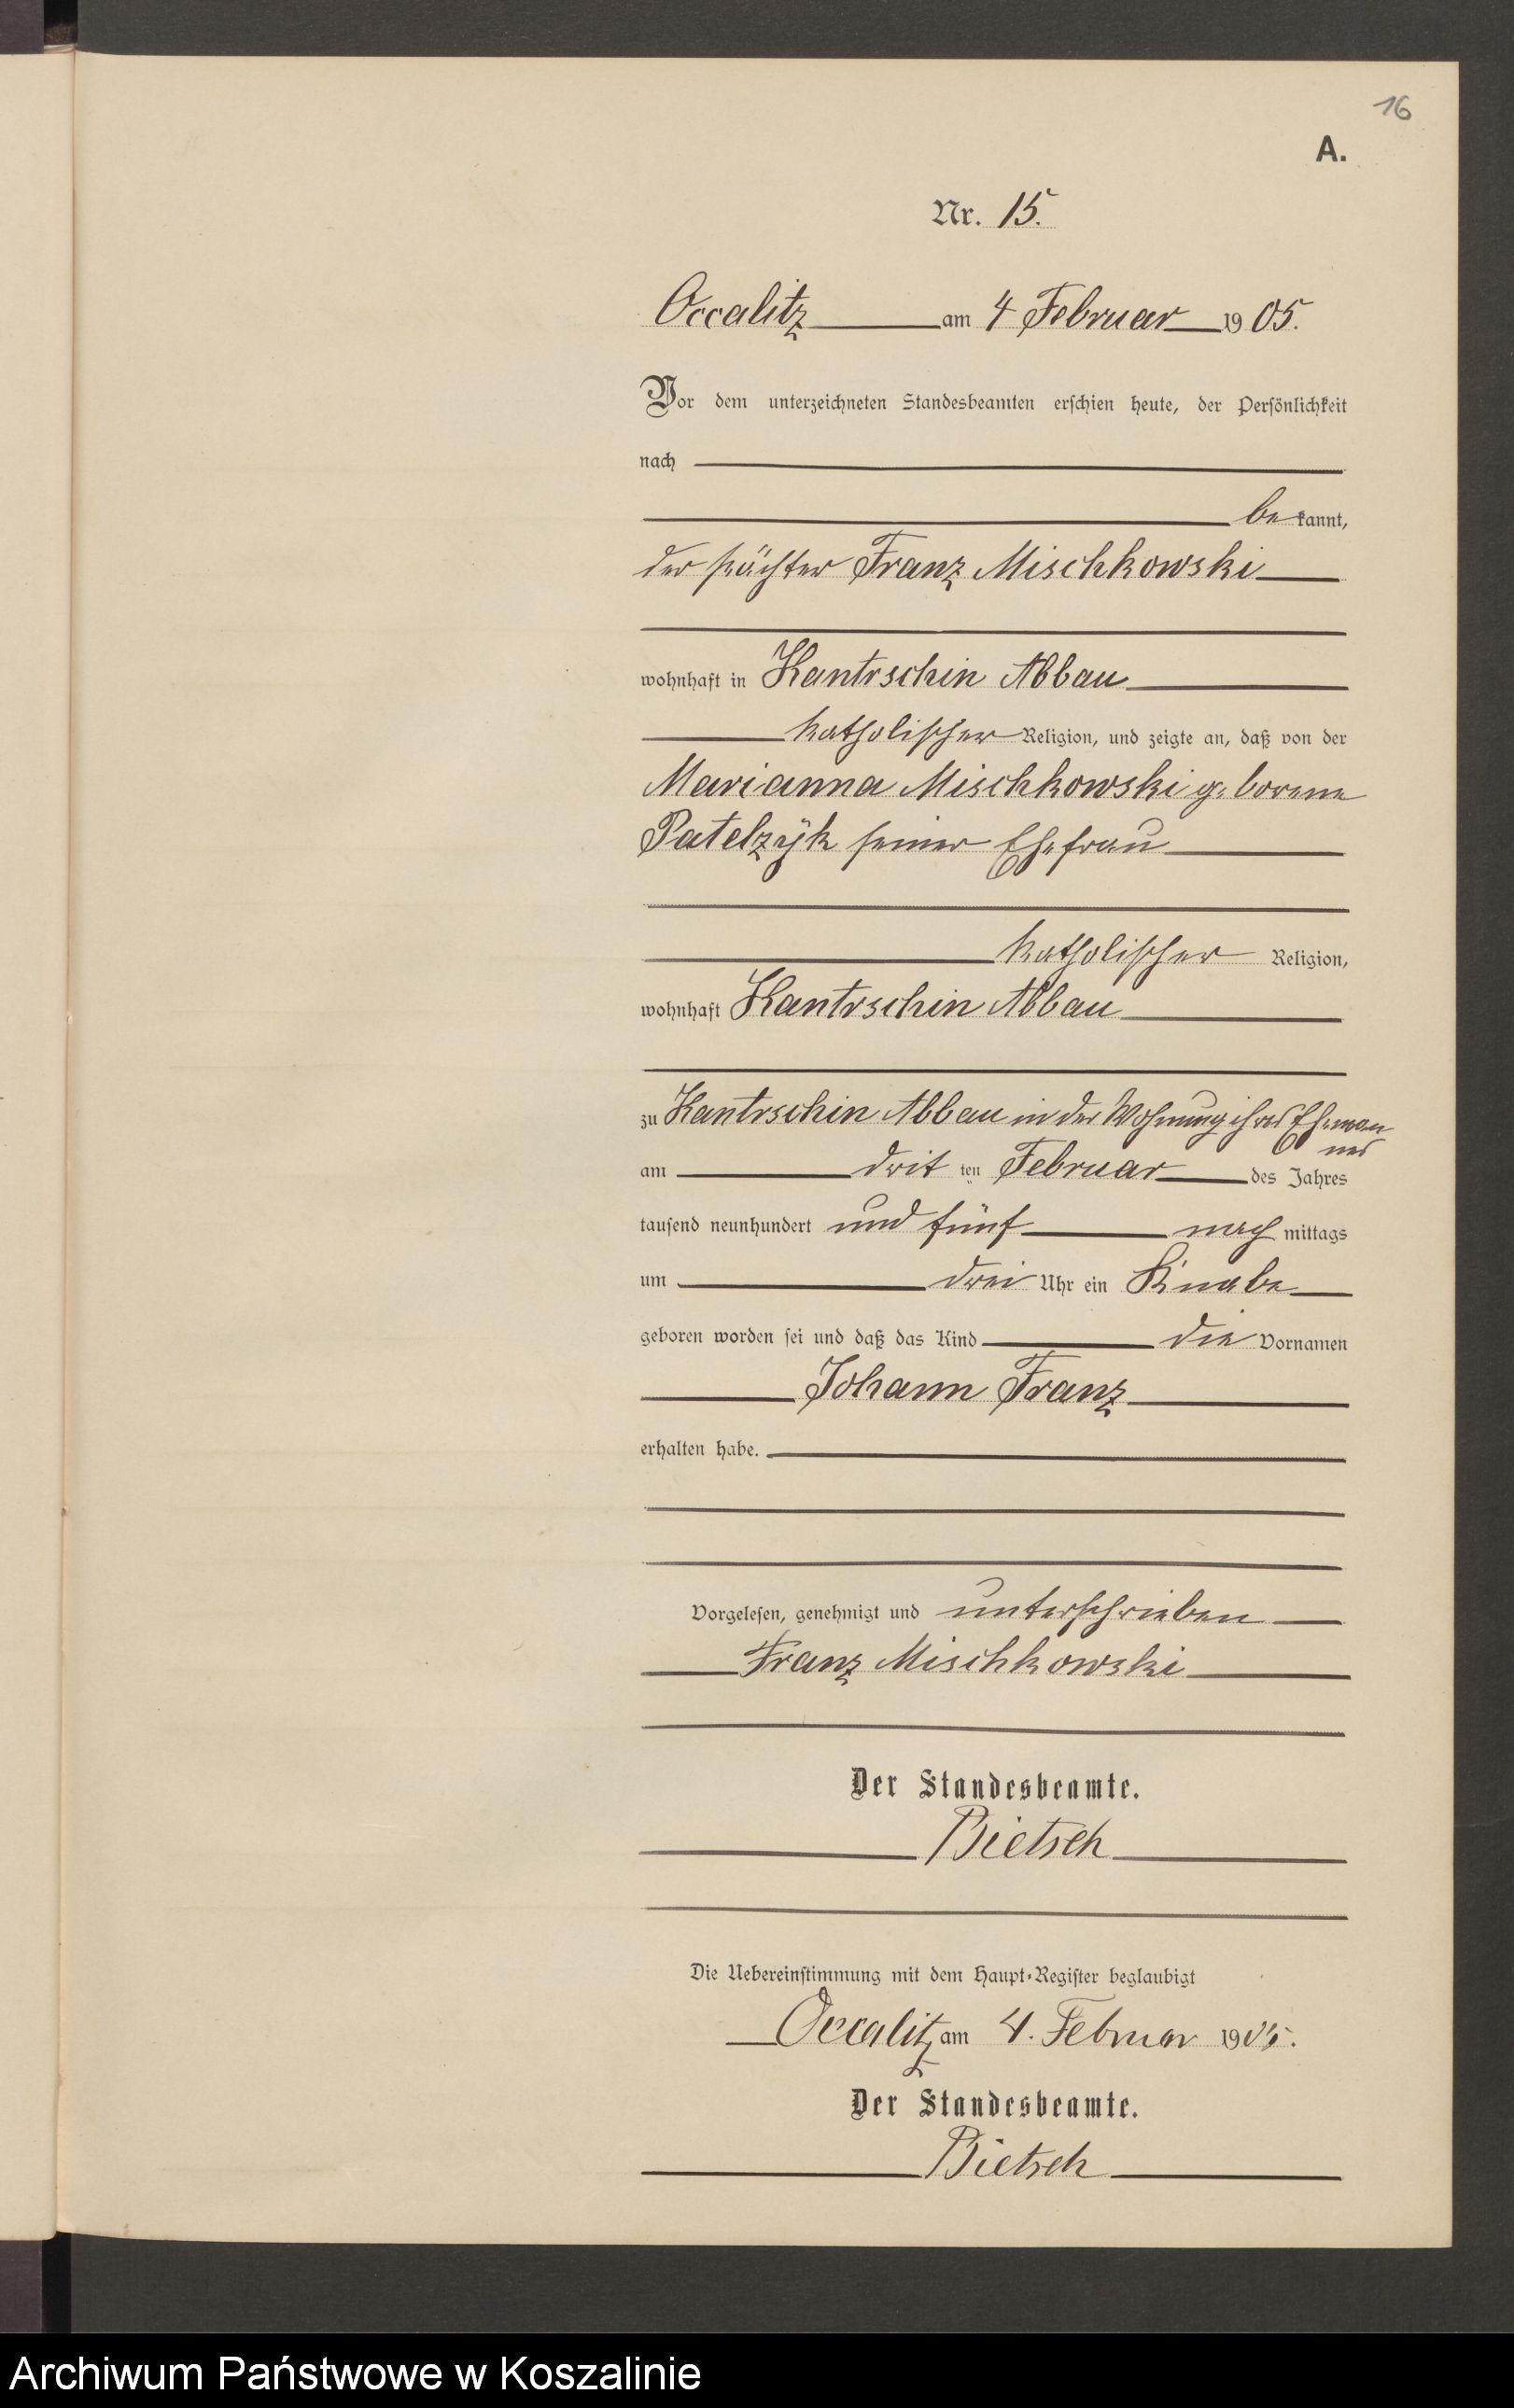 16
A.
Nr. 15.
Occalitz am 4 Februar 1905.
Vor dem unterzeichneten Standesbeamten erschien heute, der Persönlichkeit
nach
bekannt,
der Pächter Franz Mischkowski
wohnhaft in Kantrschin Abbau
katholischer Religion, und zeigte an, daß von der
Marianna Mischkowski geborene
Patelzÿk seiner Ehefrau
katholischer Religion,
wohnhaft Kantrschin Abbau
zu Kantrschin Abbau in der Wohnung ihres Eheman
nes
am dritten Februar des Jahres
tausend neunhundert und fünf nachmittags
um drei Uhr ein Knabe
geboren worden sei und daß das Kind die Vornamen
Johann Franz
erhalten habe.
Vorgelesen, genehmigt und unterschrieben
Franz Mischkowski
Der Standesbeamte.
Bietsch
Die Uebereinstimmung mit dem Haupt-Register beglaubigt
Occalitz am 4. Februar 1905.
Der Standesbeamte.
Bietsch
Archiwum Państwowe w Koszalinie